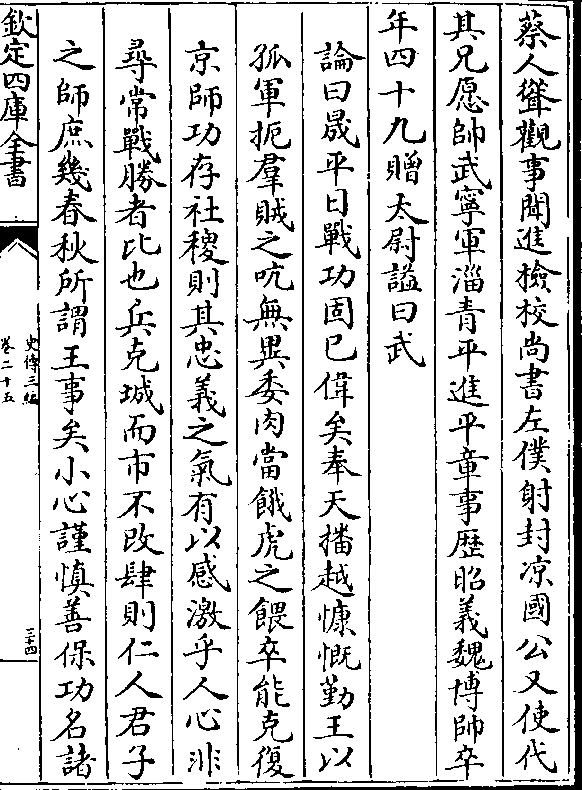 蔡人聳觀事聞進檢校尚書左僕射封凉國公又使代
其兄愿帥武寧軍淄青平進平章事歴昭義魏博帥卒
年四十九贈太尉諡曰武
論曰晟平日戰功固已偉矣奉天播越慷慨勤王以
孤軍扼羣賊之吭無異委肉當餓虎之餵卒能克復
京師功存社稷則其忠義之氣有以感激乎人心非
尋常戰勝者比也兵克城而市不改肆則仁人君子
之師庶幾春秋所謂王事矣小心謹慎善保功名諸
欽定四庫全書
史傳三編
卷二十五
三十四